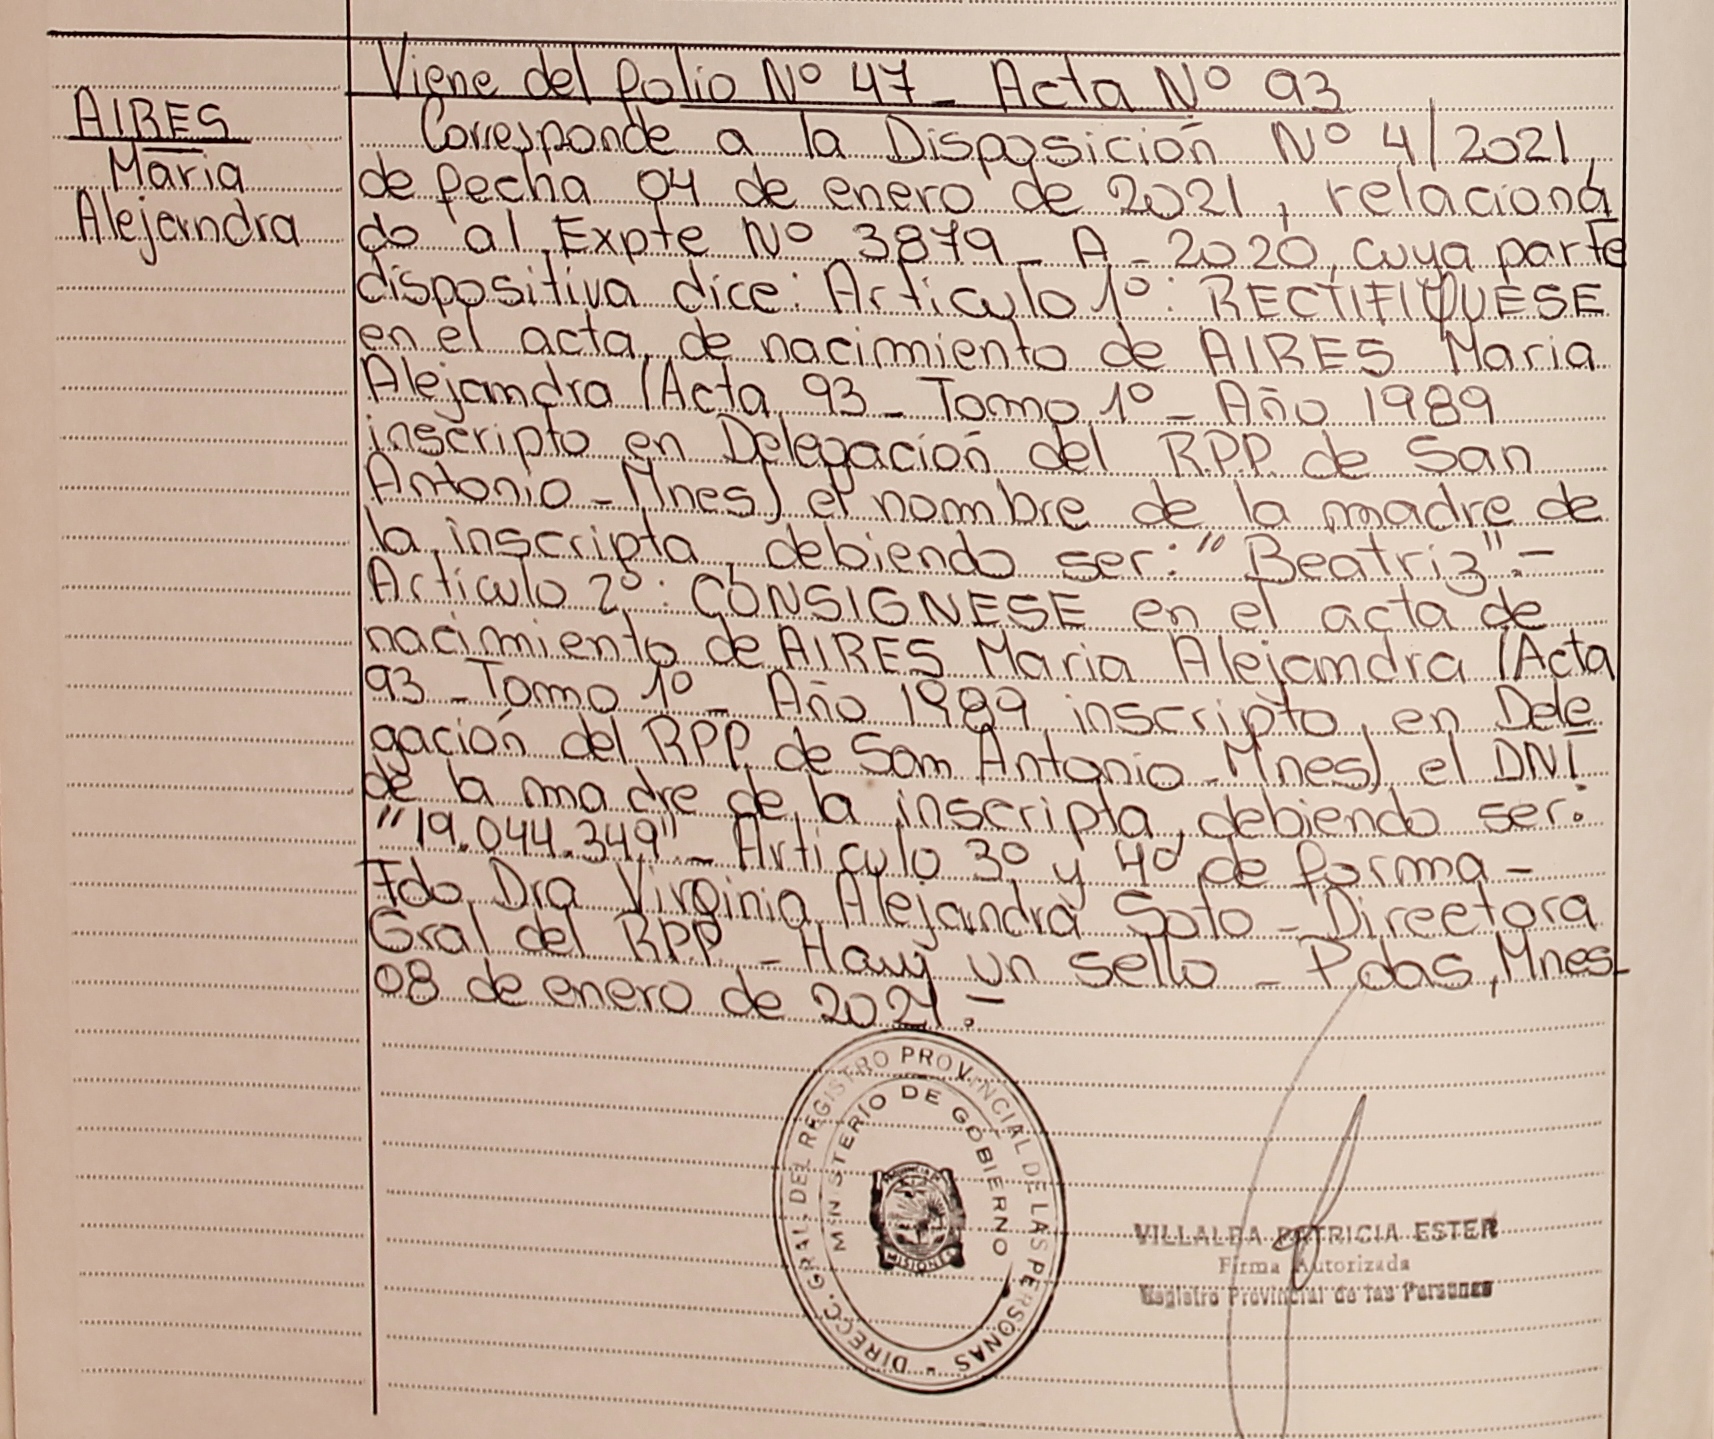 Viene del folio Nº 47 _ Acta Nº 93
AIRES
Maria
Alejandra
Corresponde a la Disposición Nº 4/2021,
de fecha 04 de enero de 2021, relaciona
do al Expte Nº 3879 _ A _ 2020, cuya parte
dispositiva dice: Artículo 1º: RECTIFIQUESE
en el acta de nacimiento de AIRES Maria
Alejandra (Acta 93 _ Tomo 1º _ Año 1989
inscripto en Delegación del R.P.P. de San
Antonio - Mnes) el nombre de la madre de
la inscripta, debiendo ser: "Beatriz".-
Artículo 2º: CONSIGNESE en el acta de
nacimiento de AIRES Maria Alejandra (Acta
93 _ Tomo 1º _ Año 1989 inscripto en Dele
gación del RPP. de San Antonio - Mnes) el DNI
de la madre de la inscripta, debiendo ser:
"19.044.349" _ Artículo 3º y 4º de forma -
Fdo Dra Virginia Alejandra Soto - Directora
Gral del R.P.P. - Hay un sello - Pdas, Mnes-
08 de enero de 2021.-
DIRECC. GRAL. DEL REGISTRO PROVINCIAL DE LAS PERSONAS -
MINISTERIO DE GOBIERNO
PROVINCIA DE
MISIONES
VILLALBA PATRICIA ESTER
Firma Autorizada
Registro Provincial de las Personas